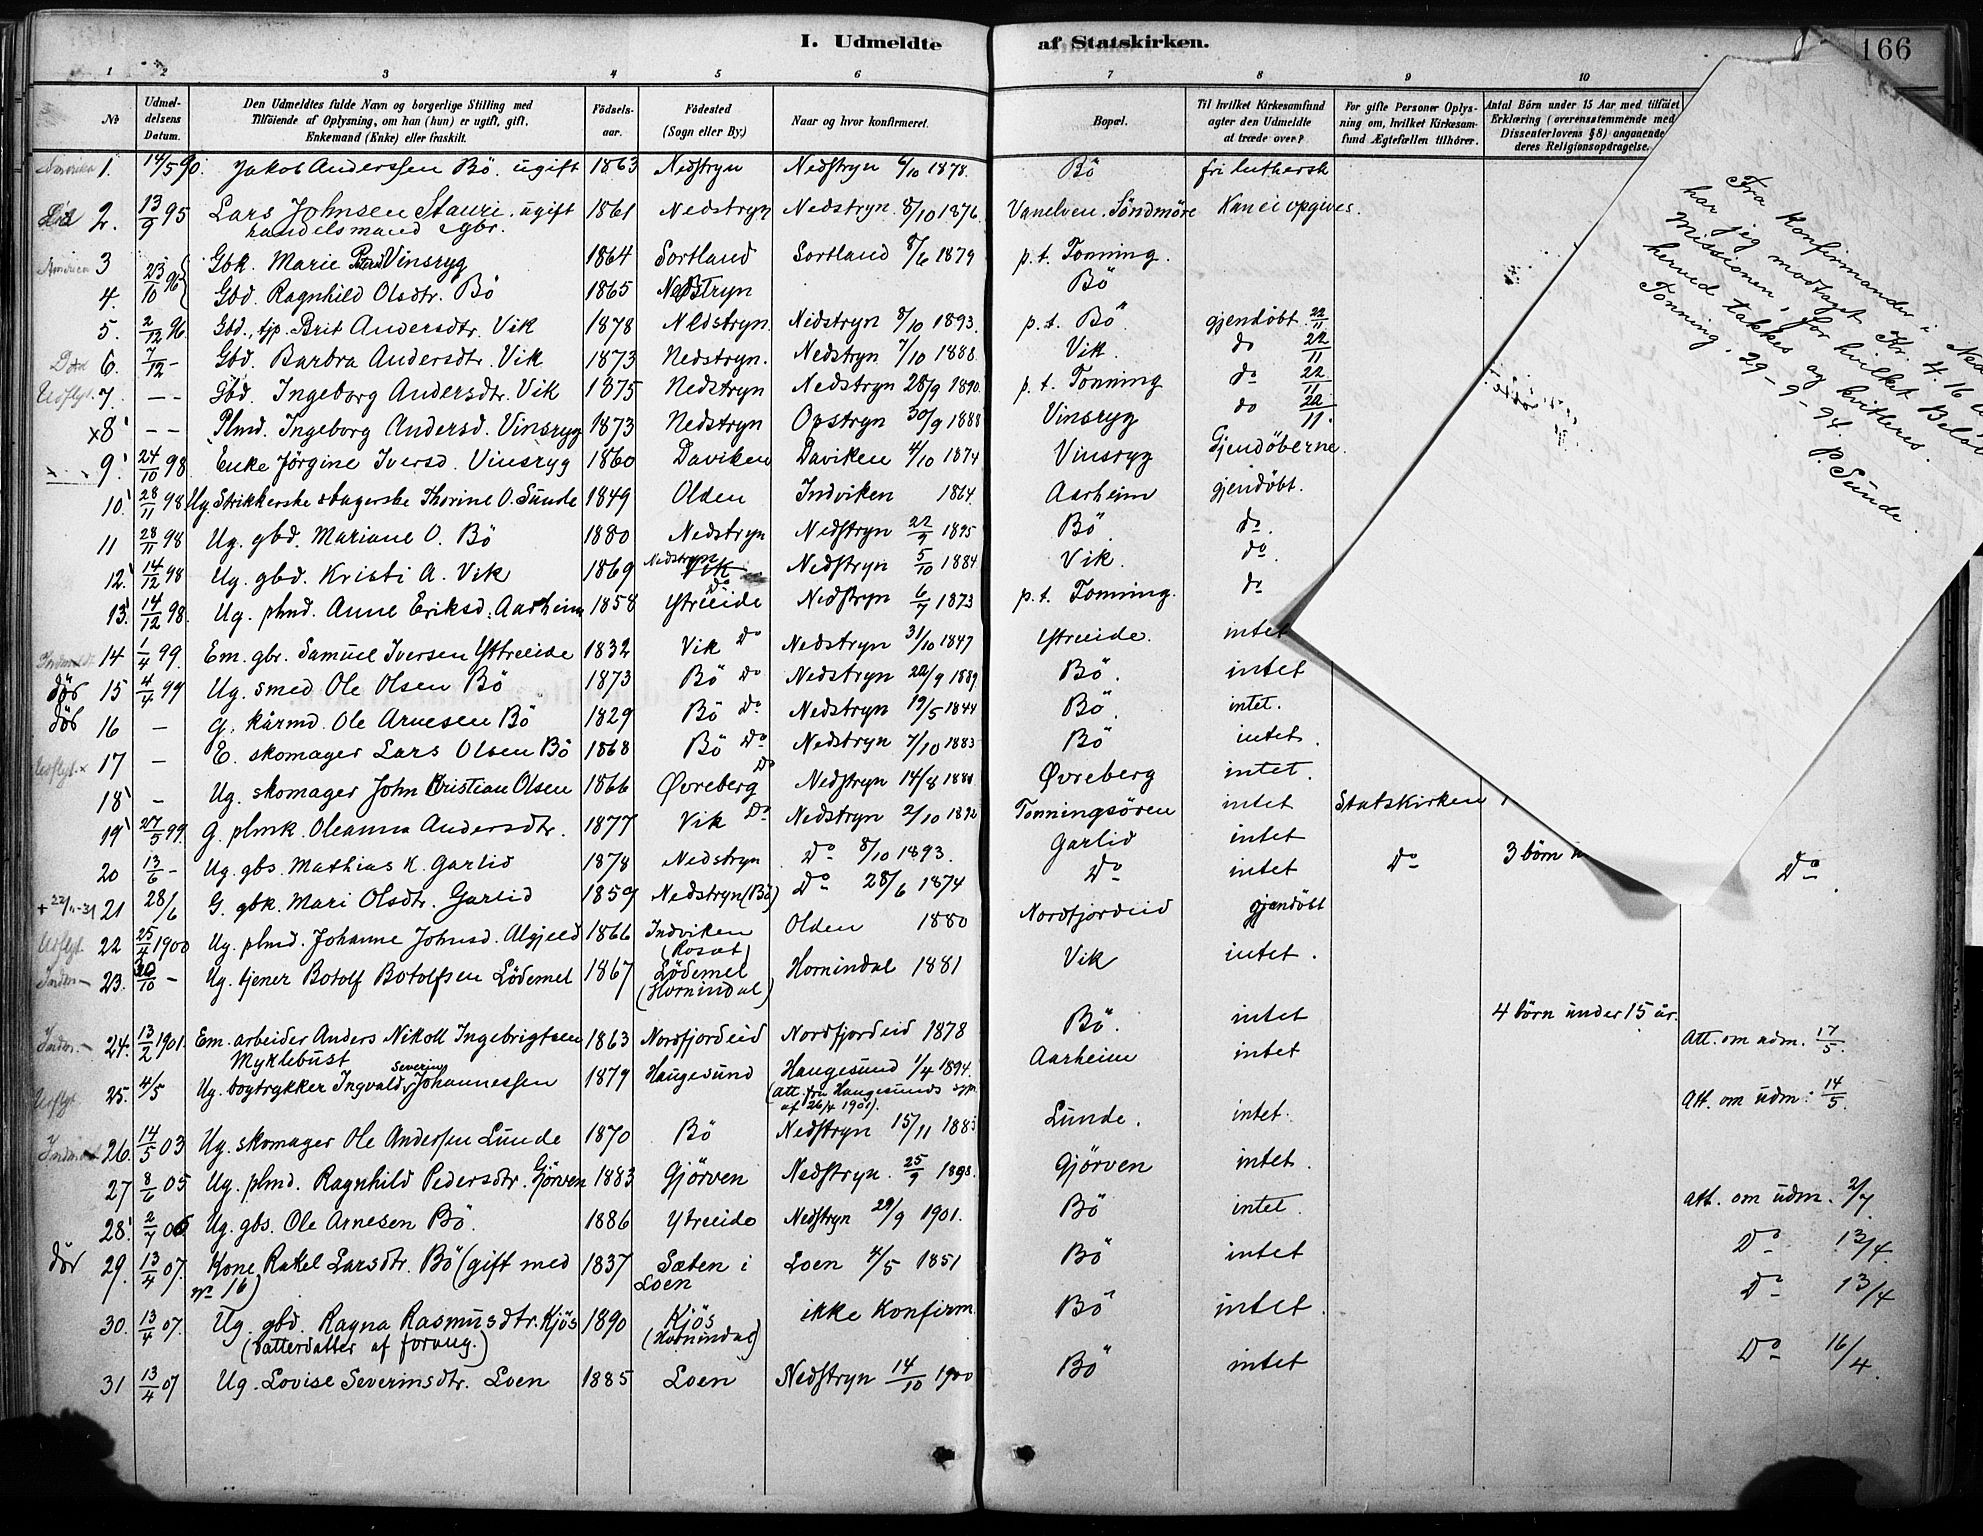 I. Udmeldte af Statskirken. 166
1 2 3 4 5 6 7 8 9 10
No
Udmel-delsens Datum.
Den Udmeldtes fulde Navn og borgerlige Stilling med Tilføiende af Oplysning, om han (hun) er ugift, gift, Enkemand (Enke) eller fraskilt.
Fødsels-aar.
Fødested (Sogn eller By.)
Naar og hvor konfirmeret.
Bopæl.
Til hvilket Kirkesamfund agter den Udmeldte at træde over?
For gifte Personer Oplys-ning om, hvilket Kirkesam-fund Ægtefællen tilhører.
Antal Børn under 15 Aar med tilføiet Erklæring (overensstemmende med Dissenterlovens § 8) angaaende deres Religionsopdragelse.
Amerika 1. 14/5 90. Jakob Anderssen Bö. ugift 1863 Nedstryn Nedstryn 6/10 1878. Bö fri luthersk
2. 13/9 95 Lars Johnsen Stauri. ugift 1861 Nedstryn Nedstryn 8/10 1876. Vanelven. Söndmöre Kan ei opgives.
handelsmand & gbr.
Amerika 3 23/10 96 Gbk. Marie Vinsryg 1864 Sortland Sortland 8/6 1879 p.t. Tonning.
4. Gbd. Ragnhild Olsdtr. Bö 1865 Nedstryn Bö
5. 2/12 96. Gbd., tjp. Brit Andersdtr. Vik 1878 Nedstryn. Nedstryn 8/10 1893. p.t. Bö. gjendöbt 22/11
Död 6. 7/12 - Gbd. Barbra Andersdtr. Vik 1873 Nedstryn. Nedstryn 7/10 1888. Vik. do 22/11
Udflyt. 7. - - Gbd. Ingeborg Andersdtr. Vik 1875 Nedstryn Nedstryn 28/9 1890. p.t. Tonning do 22/11
x8 - - Plmd. Ingeborg Andersd. Vinsryg 1873 Nedstryn Opstryn 30/9 1888 Vinsryg do 22/11.
9. 24/10 98 Enke Jörgine Iversd. Vinsryg 1860 Daviken Daviken 4/10 1874 Vinsryg Gjendöberne.
10. 28/11 98 Ug. Strikkerske & bagerske Thorine O. Sunde 1849 Olden Indviken 1864. Aarheim gjendöbt.
11 28/11 98 Ug. gbd. Mariane O. Bö 1880 Nedstryn Nedstryn 22/9 1895 Bö. do.
12. 14/12 98 Ug. gbd. Kristi A. Vik 1869 Nedstryn Vik Nedstryn 5/10 1884 Vik. do
13. 14/12 98. Ug. plmd. Anne Eriksd. Aarheim 1858 Ytreeide do Nedstryn 6/7 1873 p.t. Tonning. do
14 1/4 99. Em. gbr. Samuel Iversen Ytreeide 1832 Vik Do Nedstryn 31/10 1847 Ytreeide. intet
död 15 4/4 99 Ug. smed Ole Olsen Bö 1873 Bö Do Nedstryn 22/9 1889 Bö. intet
död 16 - G. kårmd. Ole Arnesen Bö 1829 Bö Do Nedstryn 19/5 1844 Bö. intet.
Udflyt. x 17 - E. skomager Lars Olsen Bö 1868 Bö Do Nedstryn 7/10 1883 Bö intet.
18 - Ug. skomager John Kristian Olsen 1866 Øvreberg Do Nedstryn 14/8 1881 Øvreberg intet.
19 27/5 99. G. plmk. Oleanna Andersdtr. 1877 Vik Do Nedstryn 2/10 1892 Tonningsören intet Statskirken
20 13/6 - Ug. gbs. Mathias K. Garlid 1878 Nedstryn Do 8/10 1893. Garlid intet
21 28/6 G. gbk. Mari Olsdtr. Garlid 1859 Nedstryn (Bö) Do 28/6 1874 Do intet Do 3 börn Do.
Udflyt. 22 25/4 1900 Ug. plmd. Johanne Johnsd. Algjeld 1866 Indviken (Roset) Olden 1880 Nordfjordeid gjendöbt
23. 30/10 - Ug. tjener Botolf Botolfsen Lödemel 1867 Lödemel (Hornindal) Hornindal 1881 Vik intet.
24. 13/2 1901. Em. arbeider Anders Nikoll Ingebrigtsen 1863 Nordfjordeid Nordfjordeid 1878 Bö. intet 4 börn under 15 år. Att. om udm. 17/5.
Myklebust
Udflyt. 25. 4/5 Ug. bogtrykker Ingvald Severin Johannessen 1879 Haugesund Haugesund 1/4 1894. Aarheim intet Att. om udm: 14/5.
(Att. fra Haugesunds spr. af 26/4 1901).
26. 14/5 03 Ug. skomager Ole Andersen Lunde 1870 Bö Nedstryn 15/11 1883 Lunde. intet.
27 8/6 05 Ug. plmd. Ragnhild Pedersdtr. Gjörven 1883 Gjörven Nedstryn. 25/9 1898. Gjörven intet.
28. 2/7 06 Ug. gbs. Ole Arnesen Bö. 1886 Ytreeide Nedstryn 29/9 1901. Bö intet. att. om udm. 2/7.
död 29. 13/4 07. Kone Rakel Larsdtr. Bö (gift med 1837 Sæten i Loen Loen 4/5 1851 Bö intet Do 13/4.
No 16)
30. 13/4 07. Ug. gbd. Ragna Rasmusdtr. Kjös 1890 Kjös (Hornindal) ikke konfirm. Bö intet. Do 13/4
(Datterdatter af forrig.)
31 13/4 07 Ug. Lovise Severinsdtr. Loen 1885 Loen Nedstryn 14/10 1900 Bö intet Do 16/4.
Fra Konfirmander i
har jeg modtaget Kr. 4.16
Missionen, for hvilket
herved takkes og kvitteres.
Tonning. 29-9-94. P. Sunde.